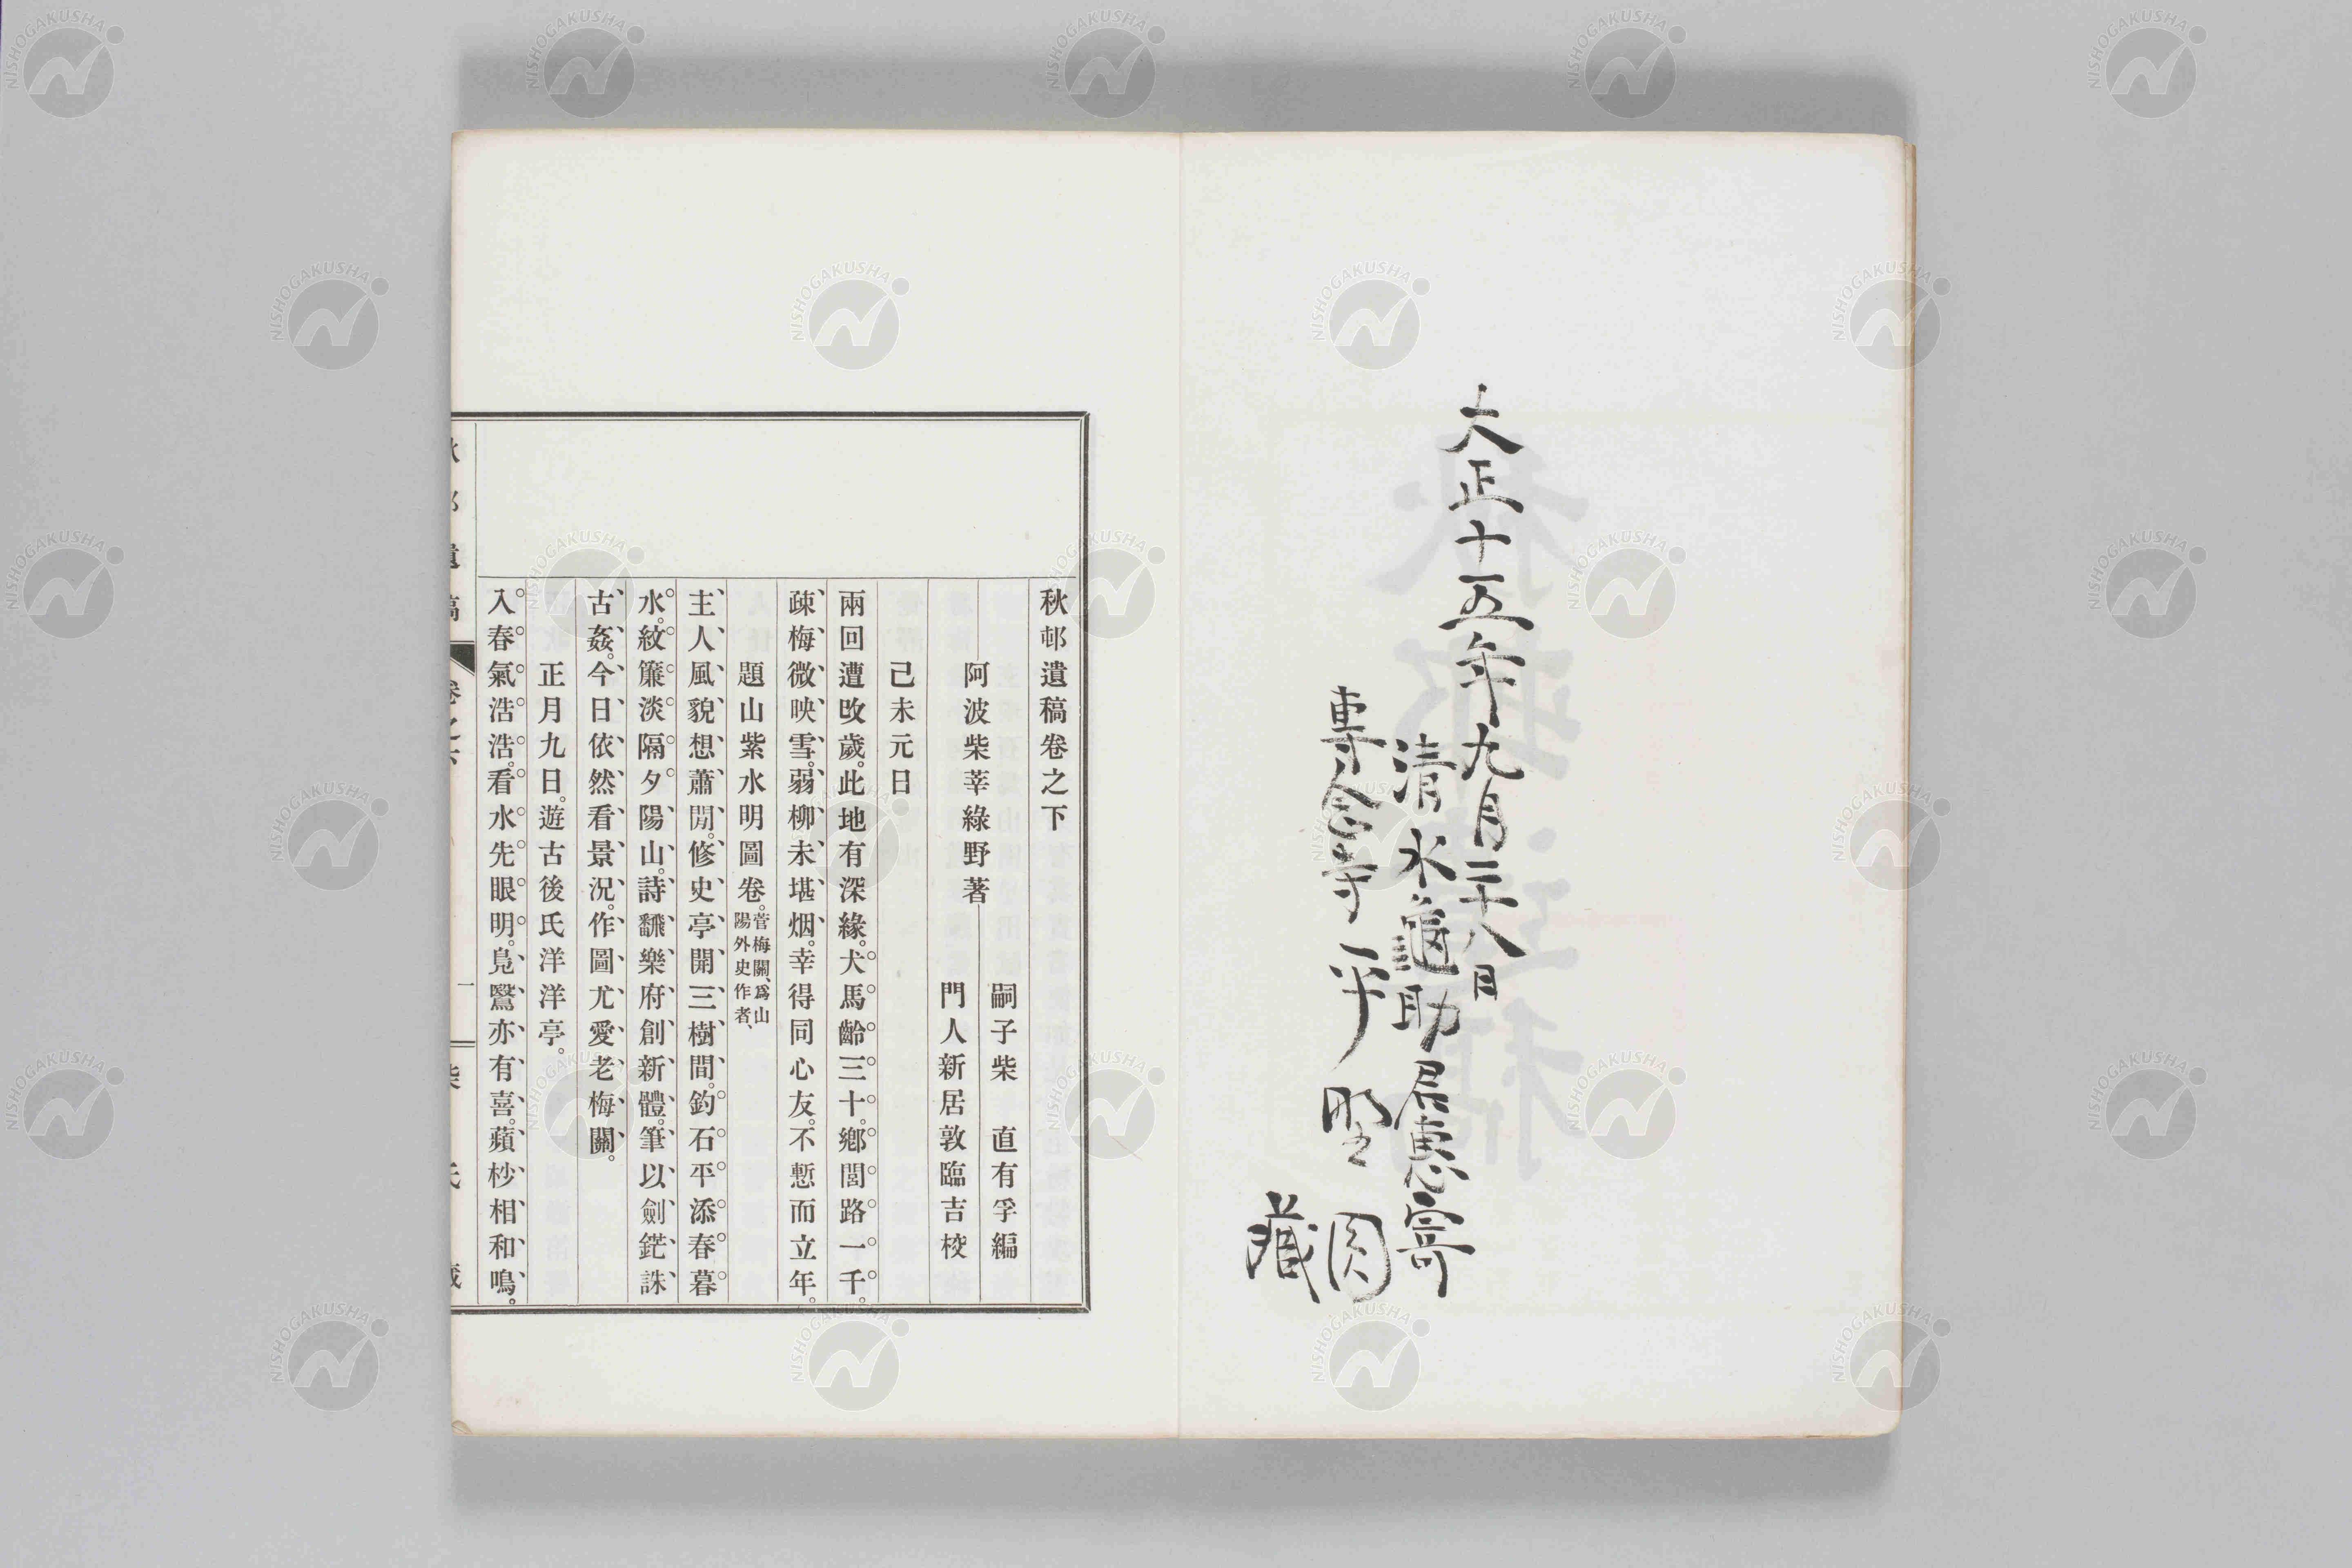 大正十五年九月二十八日
清水龜助君惠寄
專念寺 平野圓藏
秋邨遺稿卷之下
阿波柴莘綠野著
嗣子柴 直有孚編
門人新居敦臨吉校
己未元日
兩回遭改歲。此地有深緣。犬馬齡三十。鄉閭路一千。
疎梅微映雪。弱柳未堪烟。幸得同心友。不慙而立年。
題山紫水明圖卷。菅梅關、爲山
陽外史作者、
主人風貌想蕭閒。修史亭開三樹間。釣石平添春暮
水。紋簾淡隔夕陽山。詩飜樂府創新體。筆以劍鋩誅
古姦。今日依然看景況。作圖尤愛老梅關。
正月九日。遊古後氏洋洋亭。
入春氣浩浩。看水先眼明。鳧鷖亦有喜。蘋杪相和鳴。
遺稿
一
NISHOGAKUSHA